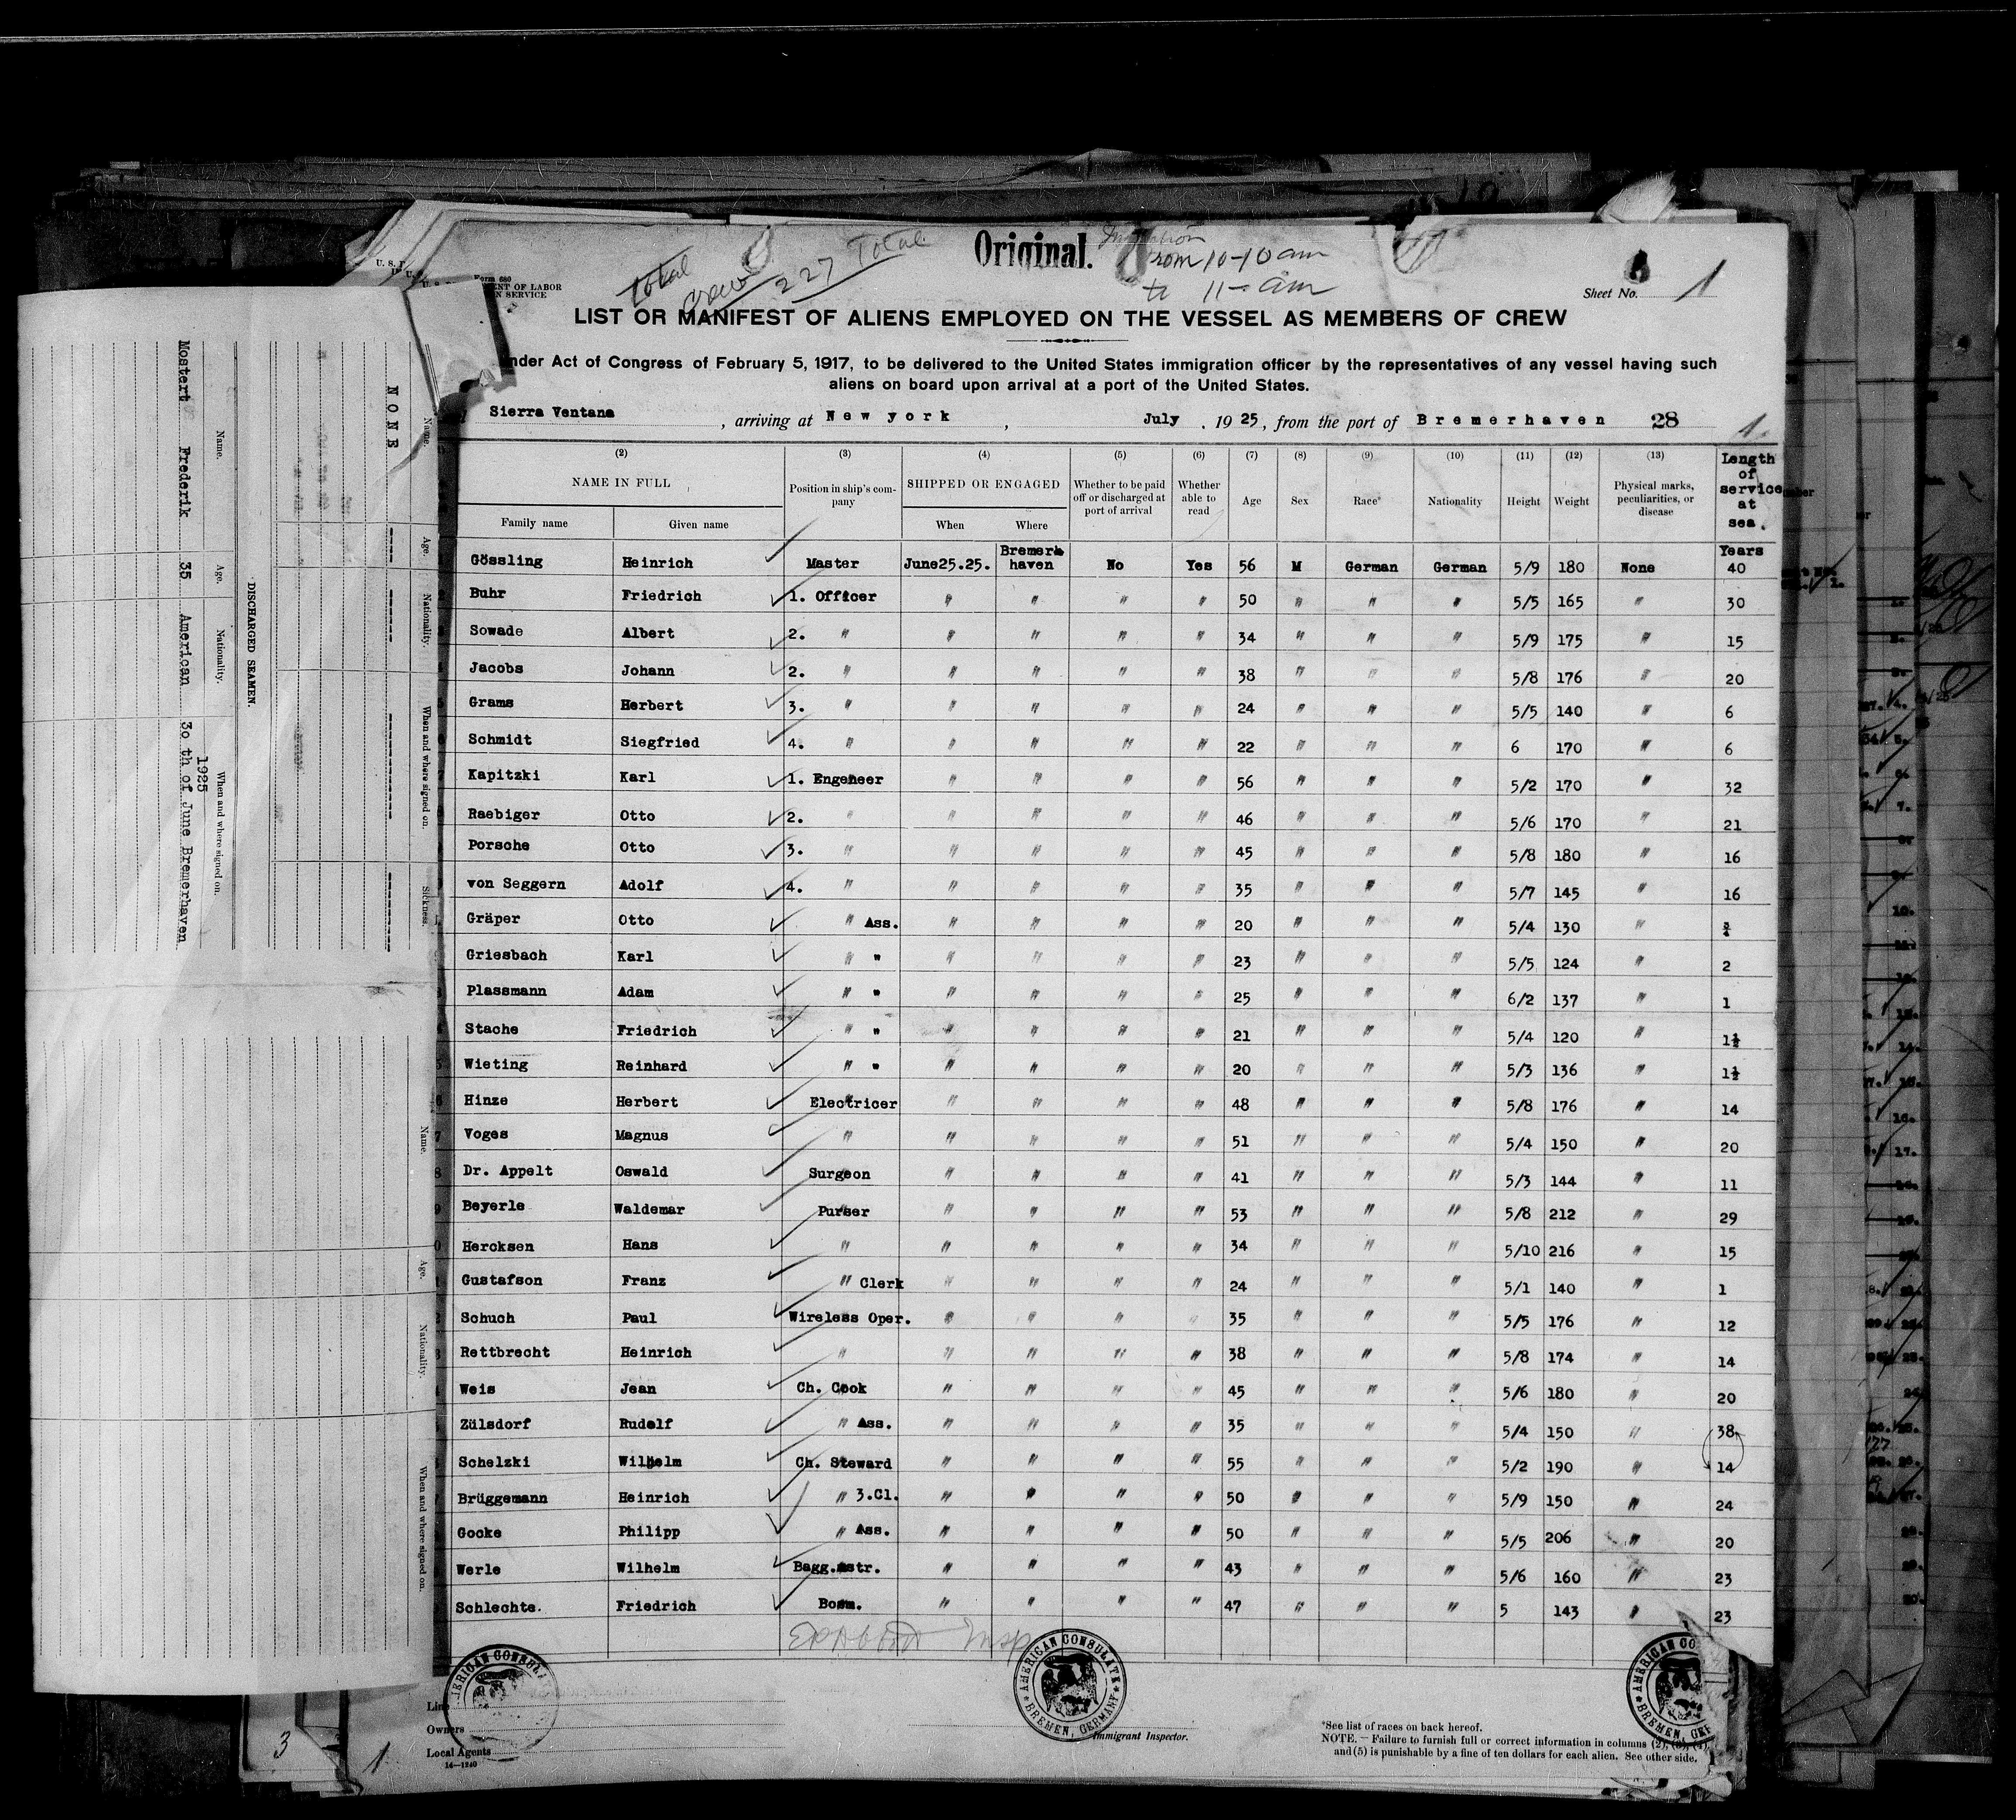 Original.
Total
crew 227 Total
from 10-10 am
to 11- am
Form 680
U. S.
ENT OF LABOR
N SERVICE
Sheet No. 1
LIST OR MANIFEST OF ALIENS EMPLOYED ON THE VESSEL AS MEMBERS OF CREW
nder Act of Congress of February 5, 1917, to be delivered to the United States immigration officer by the representatives of any vessel having such
aliens on board upon arrival at a port of the United States.
Sierra Ventana, arriving at New york, July, 1925, from the port of Bremerhaven 28 1.
(2) (3) (4) (5) (6) (7) (8) (9) (10) (11) (12) (13)
NAME IN FULL Position in ship's company SHIPPED OR ENGAGED Whether to be paid off or discharged at port of arrival Whether able to read Age Sex Race* Nationality Height Weight Physical marks, peculiarities, or disease Length of service at sea.
Family name Given name When Where
Gössling Heinrich Master June25.25. Bremerhaven No Yes 56 M German German 5/9 180 None Years 40
Buhr Friedrich 1. Officer " " " " 50 " " " 5/5 165 " 30
Sowade Albert 2. " " " " " 34 " " " 5/9 175 " 15
Jacobs Johann 2. " " " " " 38 " " " 5/8 176 " 20
Grams Herbert 3. " " " " " 24 " " " 5/5 140 " 6
Schmidt Siegfried 4. " " " " " 22 " " " 6 170 " 6
Kapitzki Karl 1. Engeneer " " " " 56 " " " 5/2 170 " 32
Raebiger Otto 2. " " " " " 46 " " " 5/6 170 " 21
Porsche Otto 3. " " " " " 45 " " " 5/8 180 " 16
von Seggern Adolf 4. " " " " " 35 " " " 5/7 145 " 16
Gräper Otto " Ass. " " " " 20 " " " 5/4 130 " ¾
Griesbach Karl " " " " " " 23 " " " 5/5 124 " 2
Plassmann Adam " " " " " " 25 " " " 6/2 137 " 1
Stache Friedrich " " " " " " 21 " " " 5/4 120 " 1½
Wieting Reinhard " " " " " " 20 " " " 5/3 136 " 1½
Hinze Herbert Electricer " " " " 48 " " " 5/8 176 " 14
Voges Magnus " " " " " 51 " " " 5/4 150 " 20
Dr. Appelt Oswald Surgeon " " " " 41 " " " 5/3 144 " 11
Beyerle Waldemar Purser " " " " 53 " " " 5/8 212 " 29
Hercksen Hans " " " " " 34 " " " 5/10 216 " 15
Gustafson Franz " Clerk " " " " 24 " " " 5/1 140 " 1
Schuch Paul Wireless Oper. " " " " 35 " " " 5/5 176 " 12
Rettbrecht Heinrich " " " " " 38 " " " 5/8 174 " 14
Weis Jean Ch. Cook " " " " 45 " " " 5/6 180 " 20
Zülsdorf Rudolf " Ass. " " " " 35 " " " 5/4 150 " 38
Schelzki Wilhelm Ch. Steward " " " " 55 " " " 5/2 190 " 14
Brüggemann Heinrich " 3.Cl. " " " " 50 " " " 5/9 150 " 24
Gocke Philipp " Ass. " " " " 50 " " " 5/5 206 " 20
Werle Wilhelm Bagg.mstr. " " " " 43 " " " 5/6 160 " 23
Schlechte. Friedrich Bosm. " " " " 47 " " " 5 143 " 23
AMERICAN CONSULATE BREMEN, GERMANY
Line
Owners
Local Agents
14—1240
Immigrant Inspector.
*See list of races on back hereof.
NOTE.—Failure to furnish full or correct information in columns (2), (3), (4),
and (5) is punishable by a fine of ten dollars for each alien. See other side.
3
1
DISCHARGED SEAMEN.
Name. Age. Nationality. When and where signed on.
Mostert Frederik 35 American 1925
30 th of June Bremerhaven
Name. Age. Nationality. When and where signed on. Sickness.
NONE
Name. Age. Nationality. When and where signed on.